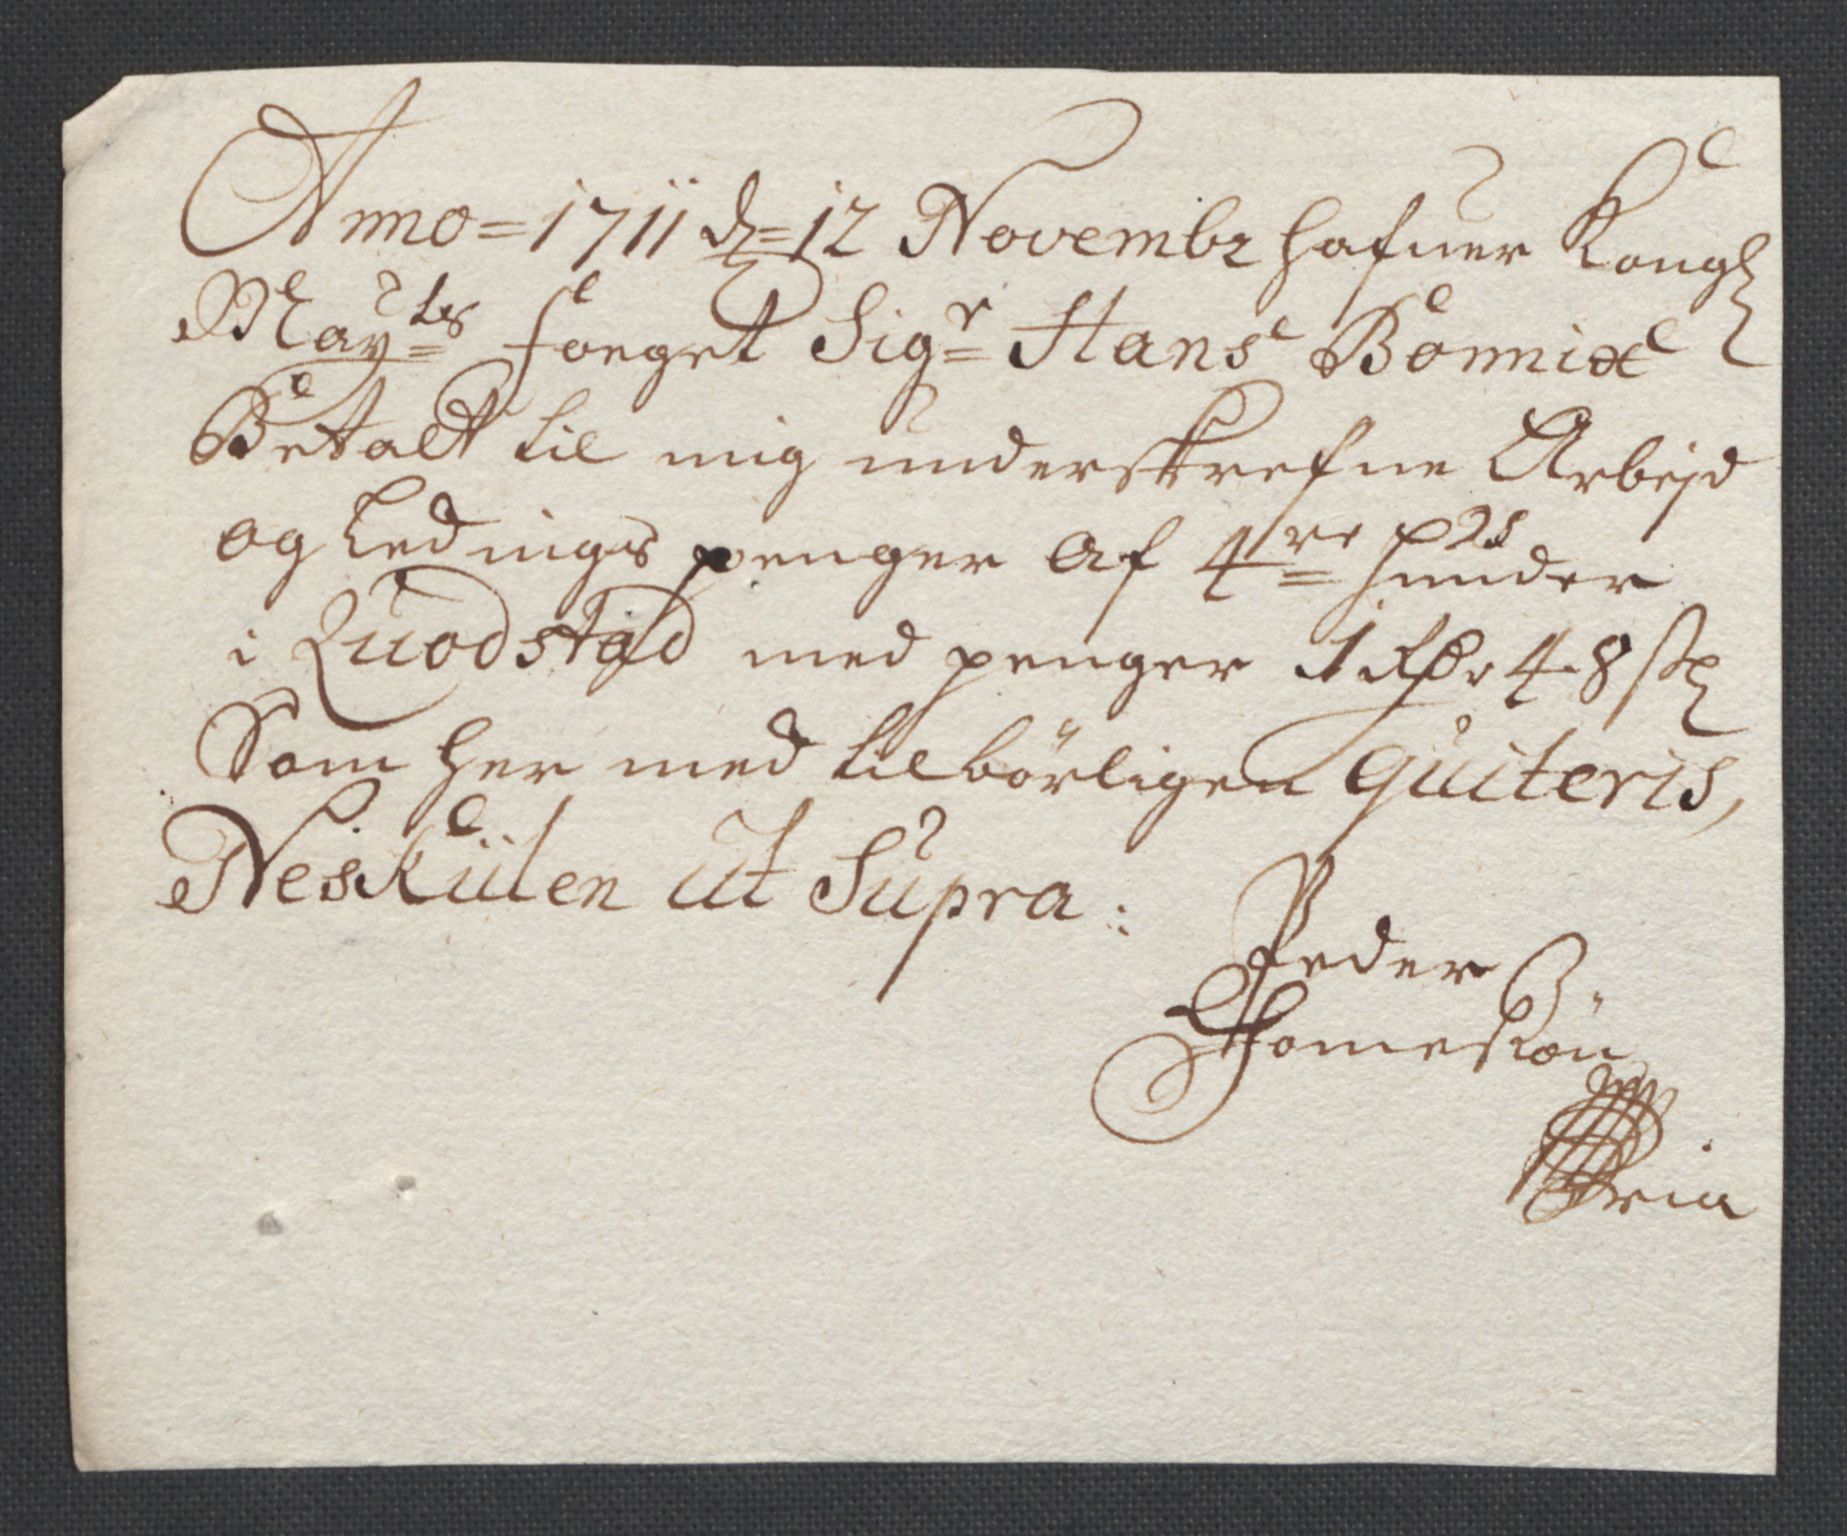 Anno = 1711 d. = 12 Novembr hafuer Kongl
Mayts foeget Sigr Hans Bönnix
Betalt til mig underskrefne Arbejd
og Lednings penger Af 4re pds hunder
i Quodstad med penger 1 Rdr 48 sk
Som her med tilbörligen quiteris,
Neskülen ut Supra :
Peder